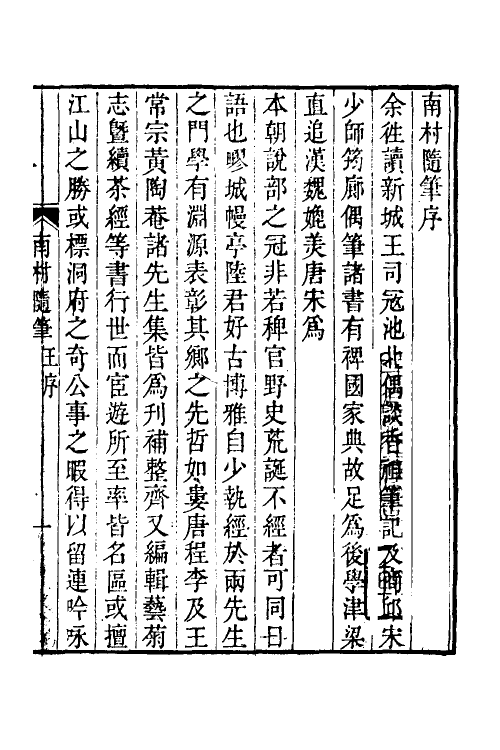 南村隨筆序
余徃讀新城王司冦池北偶談香祖筆記及商邱宋
少師筠廊偶筆諸書有禆國家典故足爲後學津梁
直追漢魏媲美唐宋爲
本朝說部之冠非若稗官野史荒誕不經者可同日
語也疁城幔亭陸君好古博雅自少執經於兩先生
之門學有淵源表彰其鄉之先哲如婁唐程李及王
常宗黃陶菴諸先生集皆爲刊補整齊又編輯藝菊
志曁續茶經等書行世而宦遊所至率皆名區或擅
江山之勝或標洞府之奇公事之暇得以留連吟咏
南村隨筆 王序 一